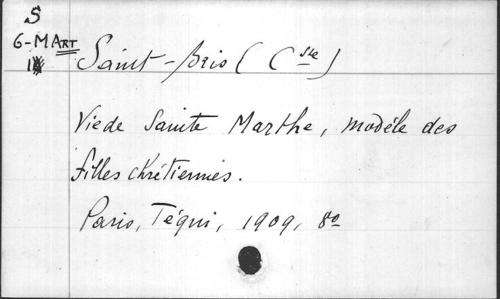 S
6-MART
1
Saint-Bris (Cste)
Vie de Sainte Marthe, modèle des
filles chrétiennes.
Paris, Téqui, 1909, 8o